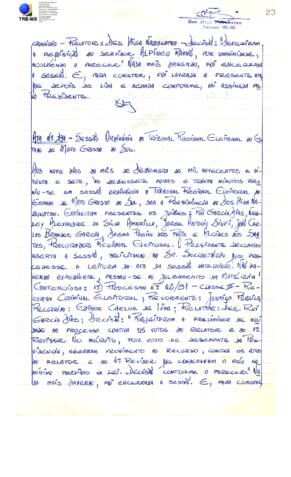 TRE-MS
23
Des. Higa Nabukatsu
Presidente TRE/MS
- Relator: Des. Higa Nabukatsu - Decisão: Deferiram,
a requisição do servidor Alfineu Ramão, por unanimidade,
acolhendo o parecer." Nada mais havendo, foi encerrada
a sessão. E, para constar, foi lavrada a presente ata
que depois de lida e achada conforme, foi assinada pe-
lo Presidente.
Ata nº - Sessão Ordinária do Tribunal Regional Eleitoral do Es-
tado de Mato Grosso do Sul.
Aos nove dias do mês de de mil novecentos e oi-
tenta e sete, às dezessete horas e trinta minutos reu-
niu-se em sessão ordinária o Tribunal Regional Eleitoral do
Estado de Mato Grosso do Sul, sob a Presidência do Des. Higa Na-
bukatsu. Estiveram presentes os juízes: Rui Garcia Dias,
ley Alexandre da Silva Amarilla, Jorge Antonio Siufi, José Car-
los Brandes Garcia, Jagas Paulin dos Reis e Alcides dos San-
tos, Procurador Regional Eleitoral. O Presidente declarou
aberta a sessão, solicitando ao Sr. Secretário que pro-
cedesse a leitura da ata da sessão anterior. Não ha-
vendo expediente, passou-se ao julgamento da matéria
Contenciosa: 1) Processo nº 02/87 - Classe II - Re-
curso Criminal Eleitoral; Recorrente: Justiça Pública
Recorrido: Edson Carlos de Lima; Relator: Des. Rui
Garcia Dias; Decisão: "Rejeitaram a preliminar de nuli-
dade do processo contra os votos do relator e do 1º
Revisor. No mérito, por voto de desempate da Pre-
sidência, negaram provimento ao recurso, contra os votos
do relator e do 1º Revisor que condenavam o réu no
mínimo previsto na lei. Decisão conforme o parecer." Na-
da mais havendo, foi encerrada a sessão. E, para constar